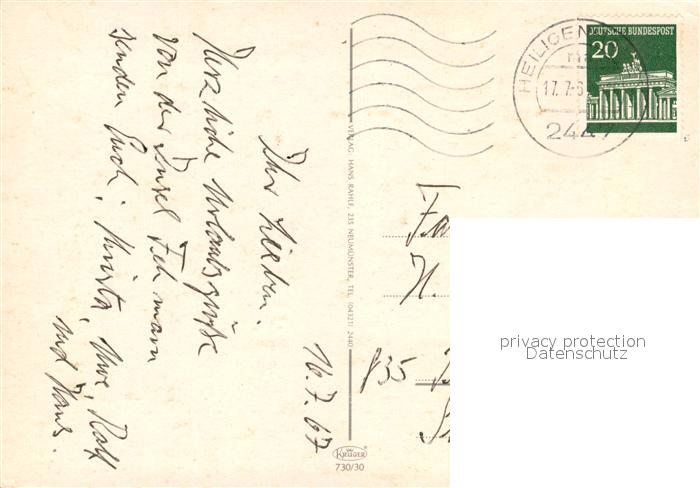 16.7.67
Ihr Lieben.
Herzliche Urlaubsgrüße
von der Insel Fehmarn
senden Euch: Christa, Uwe, Ralf
und Hans.
VERLAG HANS RAHLF, 235 NEUMÜNSTER, TEL. (04321) 2440
KRÜGER
730/30
HEILIGEN
17.7.6
244
DEUTSCHE BUNDESPOST
20
H.
835
privacy protection
Datenschutz